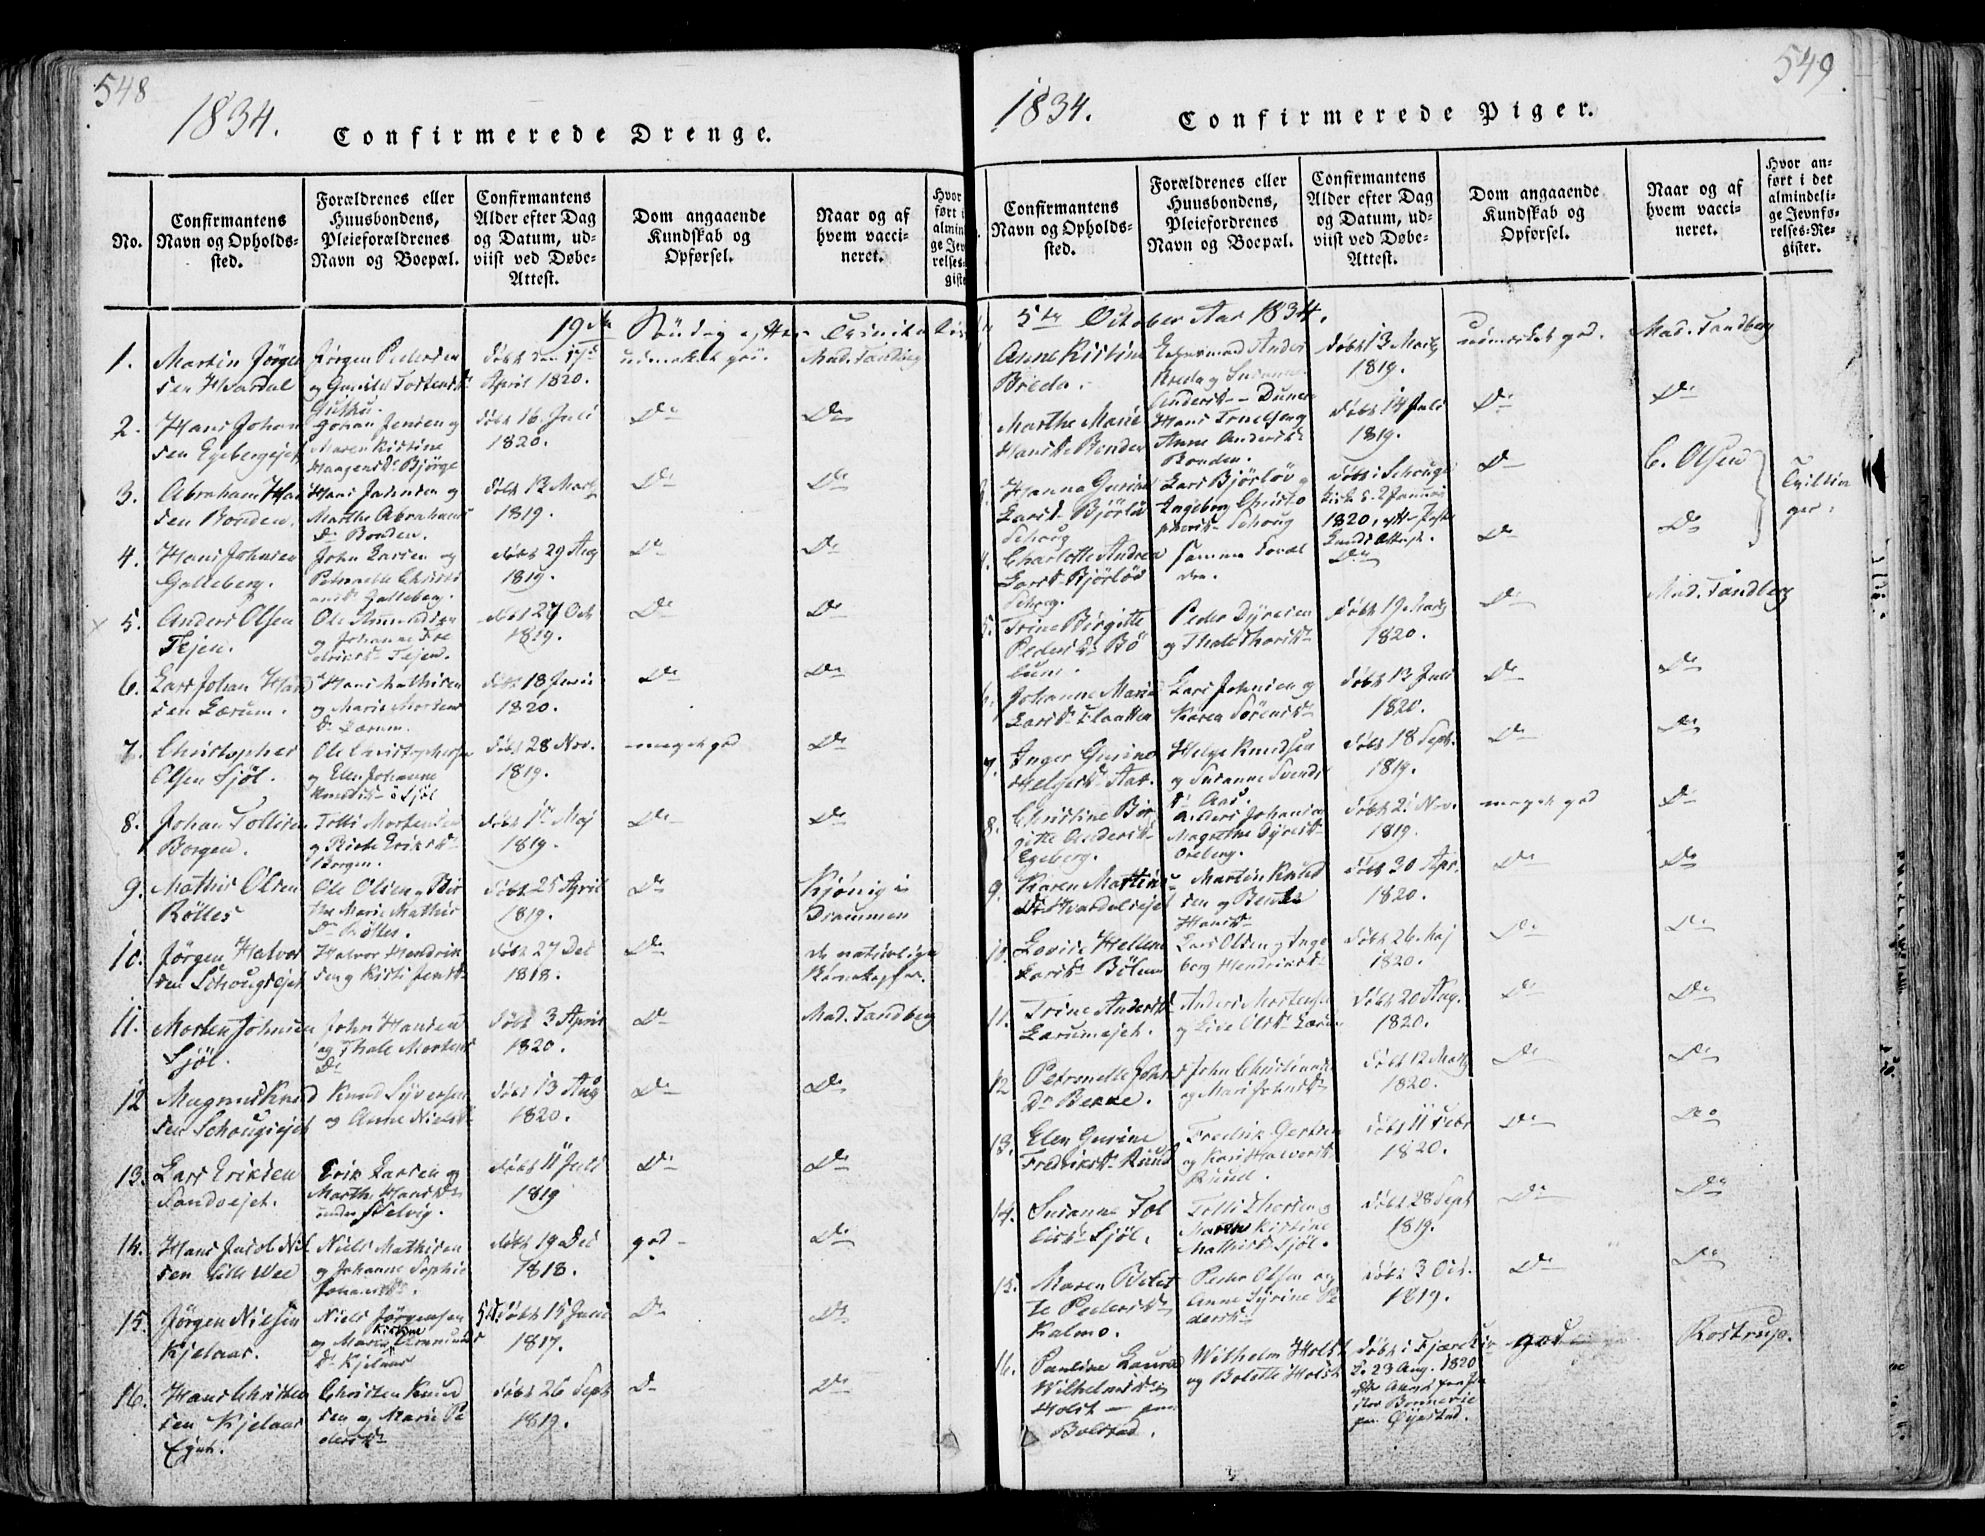 548
1834.
Confirmerede Drenge.
No.
Confirmantens Navn og Opholdssted.
Forældrenes eller Huusbondens, Pleieforældrenes Navn og Boepæl.
Confirmantens Alder efter Dag og Datum, udviist ved Døbe-Attest.
Dom angaaende Kundskab og Opførsel.
Naar og af hvem vaccineret.
19de Søndag efter Trinita
1. Martin Jørgen
sen Hvardal
Jørgen Pedersen
døbt den
April 1820.
udmærket god.
Mad. Tandberg
2. Hans Johan
sen Egebergejet
Johan Jensen og
Maren Kistine
Haagensdr Bjørge
døbt 16 Juli
1820.
Do
Do
3. Abraham Han
sen Bonden.
Hans Jahnsen og
Marthe Abrahams
Dr Bonden.
døbt 12 Marty
1819.
Do
Do
4. Hans Johnsen
Galleberg.
John Larsen og
Petronelle Christi
ansdr Galleberg.
døbt 29 Aug
1819.
Do
Do
5. Anders Olsen
Tejen.
Ole Amundsen
og Johanne Fre
driksdr Tejen.
døbt 27 Oct
1819.
Do
Do
6. Lars Johan Han
sen Lærum.
Hans Mathisen
og Marie Mortens
Dr Lærum.
døbt 18 Juni
1820.
Do
Do
7. Christopher
Olsen Sjøl.
Ole Christophersen
og Elen Johanne
Knudsdr Sjøl
døbt 28 Nov.
1819.
meget god
Do
8. Johan Tollisen
Borgen.
Tolli Mortensen
og Birthe Eriksdr
Borgen.
døbt 1te Maj
1819.
Do
Do
9. Mathis Olsen
Rölles
Ole Olsen og Bir
the Marie Mathis
Dr Rölles.
døbt 25 April
1819.
Do
Kjönig i
Drammen
10. Jørgen Halvor
sen Schougsejet
Halvor Hendrik
sen og Kisti Jensdr
døbt 27 Dec
1818.
Do
de naturlige
Börnekopper.
11. Morten Johnsen
Sjøl.
John Hansen
og Thale Mortens
Dr
døbt 3 April
1820.
Do
Mad. Tandberg
12 Magnus Knud
sen Schougsejet
Knud Syversen
og Anne Nielsdr
døbt 13 Aug
1820.
Do
Do
13. Lars Eriksen
Sandsejet.
Erik Larsen og
Marthe Hansdr
under Selvig.
døbt 11 Juli
1819
Do
Do
14. Hans Jacob Niel
sen lille Wee
Niels Mathisen
og Johanne Sophie
Johansdr.
døbt 19 Dec
1818.
god
Do
15. Jørgen Nielsen
Kjelaas.
Niels Jørgensen
og Maren Kistine Amunds
Dr Kjelaas
døbt 15 Juni
1817.
Do
Do
16. Hans Christen
sen Kjelaas
Egnt.
Christen Knud
sen og Marie Pe
dersdr
døbt 26 Sept
1819.
Do
Do
549
1834.
Confirmerede Piger.
Confirmantens Navn og Opholdssted.
Forældrenes eller Huusbondens, Pleiefordrenes Navn og Boepæl.
Confirmantens Alder efter Dag og Datum, udviist ved Døbe-Attest.
Dom angaaende Kundskab og Opførsel.
Naar og af hvem vaccineret.
Hvor anført i det almindelige Jevnførelses-Register.
5te October Aar 1834.
Anne Kistine
Breda.
døbt 13 Marty
1819.
udmærket god.
Mad. Tandberg
Marthe Marie
Hansdr Bonden
Hans Truelsen og
Anne Andersdr
Bonden.
døbt 14 Juli
1819.
Do
Do
3. Hanna Gurine
Larsdr Bjørløv
Schoug
Lars Bjørløv og
Ingeborg Christo
phersdr Schoug
døbt i Schouge
Kirke d. 2 Januar
1820, efter Præste
Lunds Attest.
Do
C. Olsen
Tvillin
ger.
4. Charlotte Andrea
Larsdr Bjørløv
Schoug.
Samme Foræl
dre.
Do
Do
Do
5. Trine Birgitte
Pedersdr Bö
lum.
Peder Dyresen
og Thale Thorsdr
døbt 19 Marty
1820.
Do
Mad. Tandberg
6. Johanne Marie
Larsdr Flaatten
Lars Johnsen og
Karen Sørensdr
døbt 13 Juli
1820.
Do
Do
7. Inger Gurine
Helgesdr Aas.
Helge Knudsen
og Susanne Svends
dr Aas.
døbt 18 Sept.
1819.
Do
Do
8. Christine Bir
gitte Andersdr
Egeberg.
Anders Johansen
Magrethe Dyresdr
Oreberg.
døbt 21 Nov.
1819.
meget god
Do
9. Karen Martins
Dr Hvardalsejet
Martin Knud
sen og Benthe
Hansdr
døbt 30 Apr.
1820.
Do
Do
10. Lovise Hellene
Larsdr Bölum
Lars Olsen og Inge
borg Hendriksdr
døbt 26 Maj
1820.
Do
Do
11. Trine Andersdr
Lærumsejet.
Anders Mortensen
og Live Olsdr Lærum
døbt 20 Aug.
1820.
Do
Do
12 Petronelle Johns
Dr Bekke.
John Christiansen
og Mari Johnsdr
døbt 12 Marty
1820.
Do
Do
13. Elen Gurine
Fredriksdr Ruud
Fredrik Gertsen
og Kari Halvorsdr
Ruud.
døbt 11 Febr
1820.
Do
Do
14. Susanne Tol
lisdr Sjøl.
Tolli Thorsen og
Maren Kistine
Mathisdr Sjøl.
døbt 28 Sept
1819.
Do
Do
15. Maren Belet
te Pedersdr
Kalmo.
Peder Olsen og
Anne Syrine Pe
dersdr
døbt 3 Oct.
1819.
Do
Do
16. Pauline Laura
Wilhelmsdr
Holst
Bolstad.
Wilhelm Holst
og Bolette Holst
døbt i Fjære Kir
d. 23 Aug. 1820
Øyestad.
god
Rostrup.